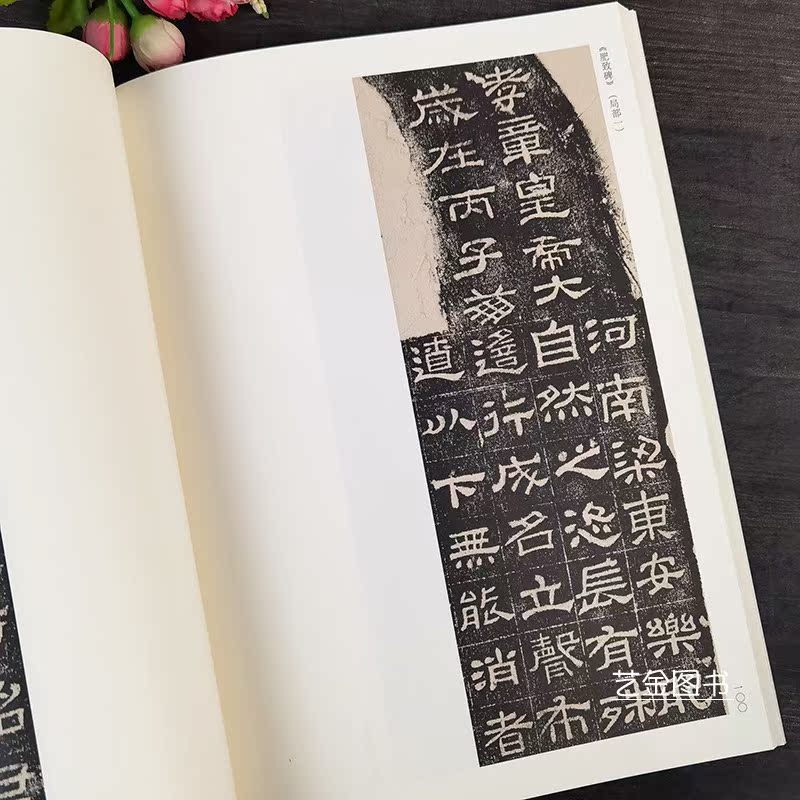 《肥致碑》（局部一）
孝章皇帝大
歲在丙子崩
河南梁東安樂肥
自然之恣長有殊
遙行成名立聲布
以下無能消者
一〇〇
艺金图书